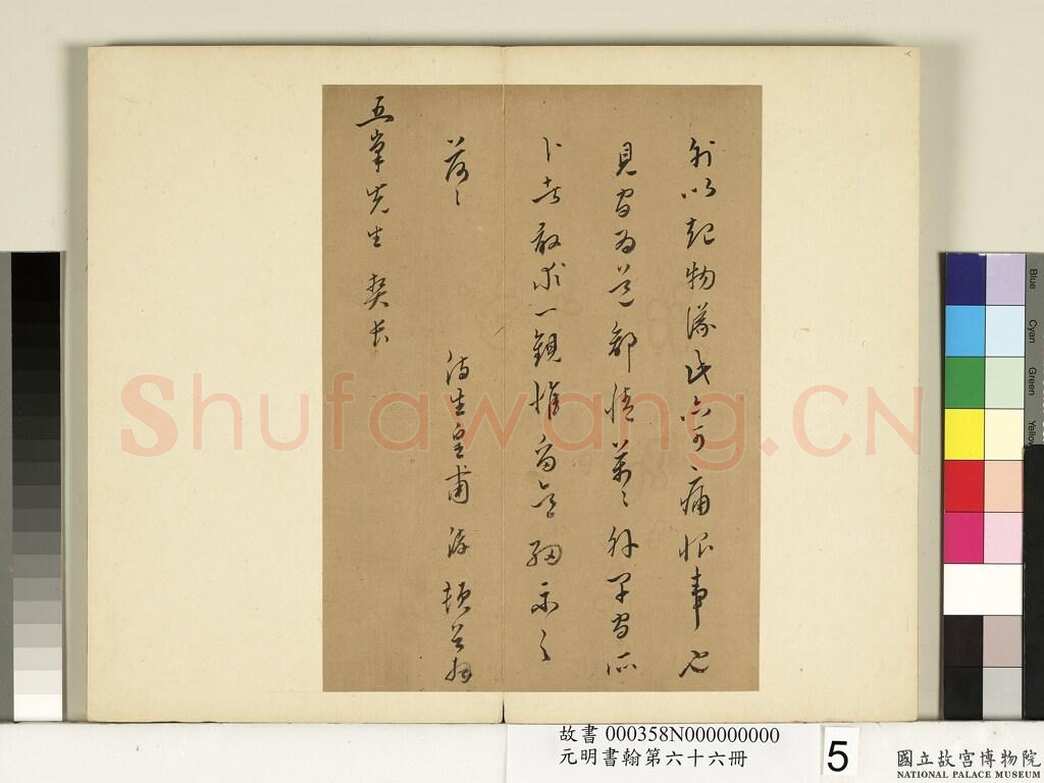 以起物議此亦可痛恨事也
見為道鄙情萬々外
卜者敢求一觀惟細示之
荷々 侍生皇甫涍頓首
五峯先生 契長
Shufawang.CN
Blue
Cyan
Green
Yellow
故書 000358N000000000
元明書翰第六十六冊
5
國立故宮博物院
NATIONAL PALACE MUSEUM